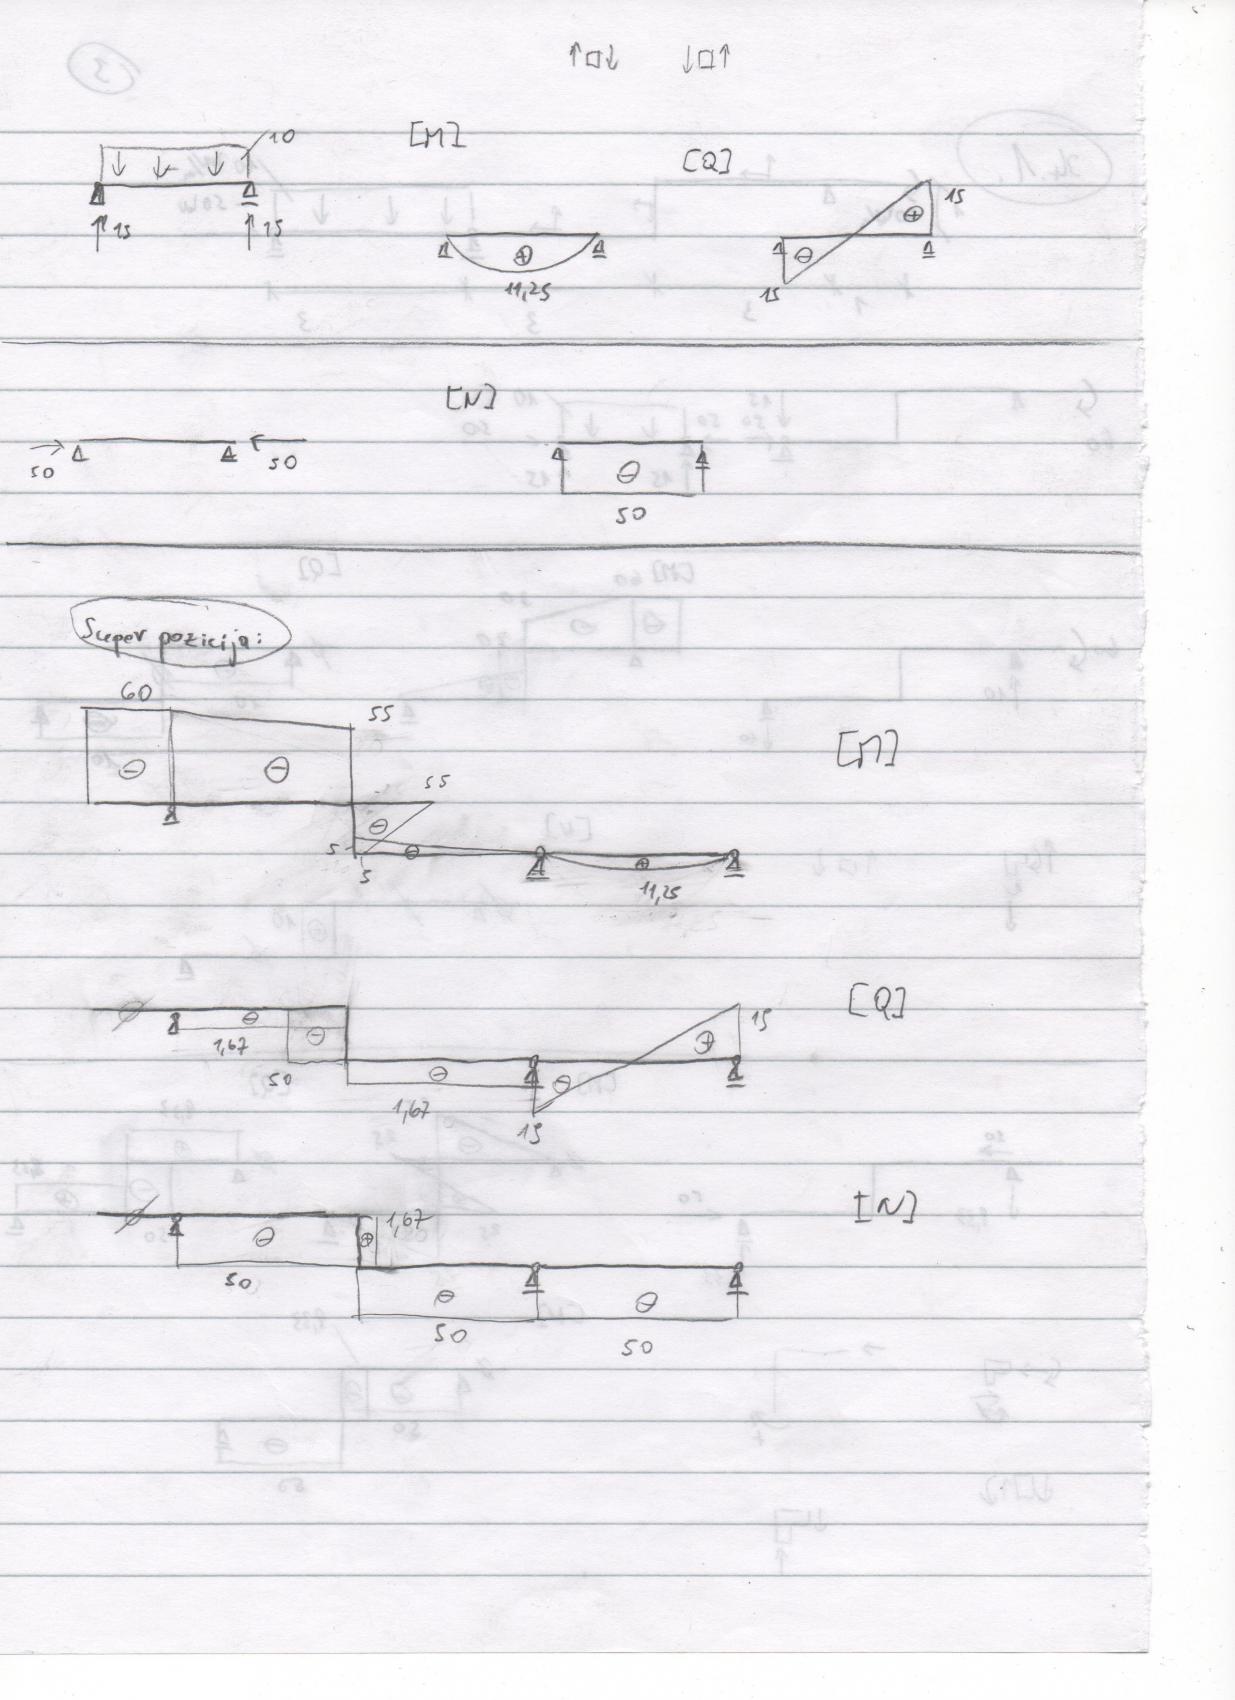 ↑□↓ ↓□↑
10
[M]
[Q]
15
15
15
⊕
⊕
⊖
11,25
15
[N]
50
50
⊖
50
Super pozicija:
60
55
[M]
⊖
⊖
55
⊖
5
⊖
⊕
5
11,25
[Q]
⊖
⊖
1,67
15
⊕
50
⊖
⊖
1,67
15
[N]
1,67
⊖
⊕
50
⊖
⊖
50
50